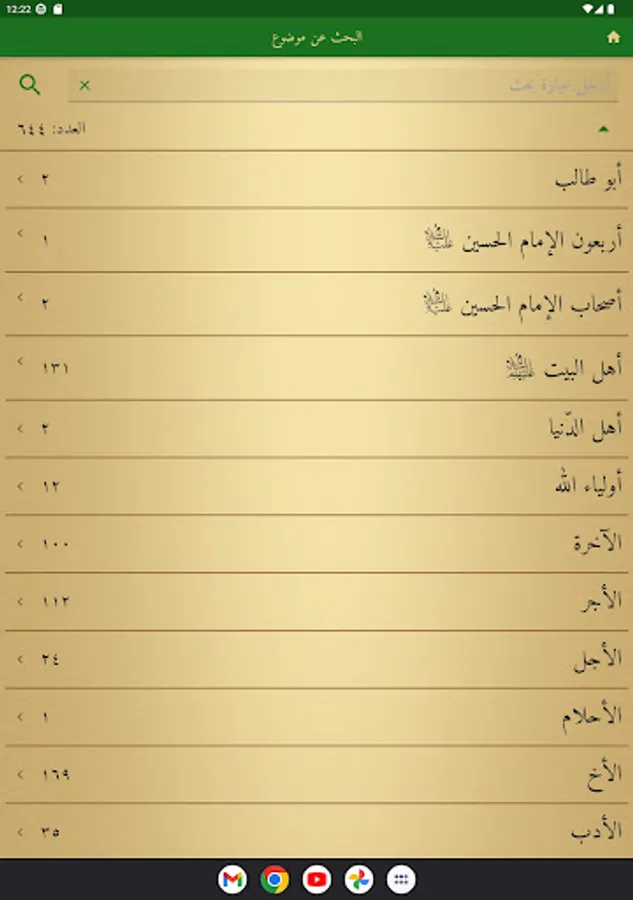 12:22
البحث عن موضوع
أدخل عبارة بحث
العدد: ٦٤٤
أبو طالب ٢
أربعون الإمام الحسين عليه السلام ١
أصحاب الإمام الحسين عليه السلام ٢
أهل البيت عليهم السلام ١٣١
أهل الدّنيا ٢
أولياء الله ١٢
الآخرة ١٠٠
الأجر ١١٢
الأجل ٢٤
الأحلام ١
الأخ ١٦٩
الأدب ٣٥